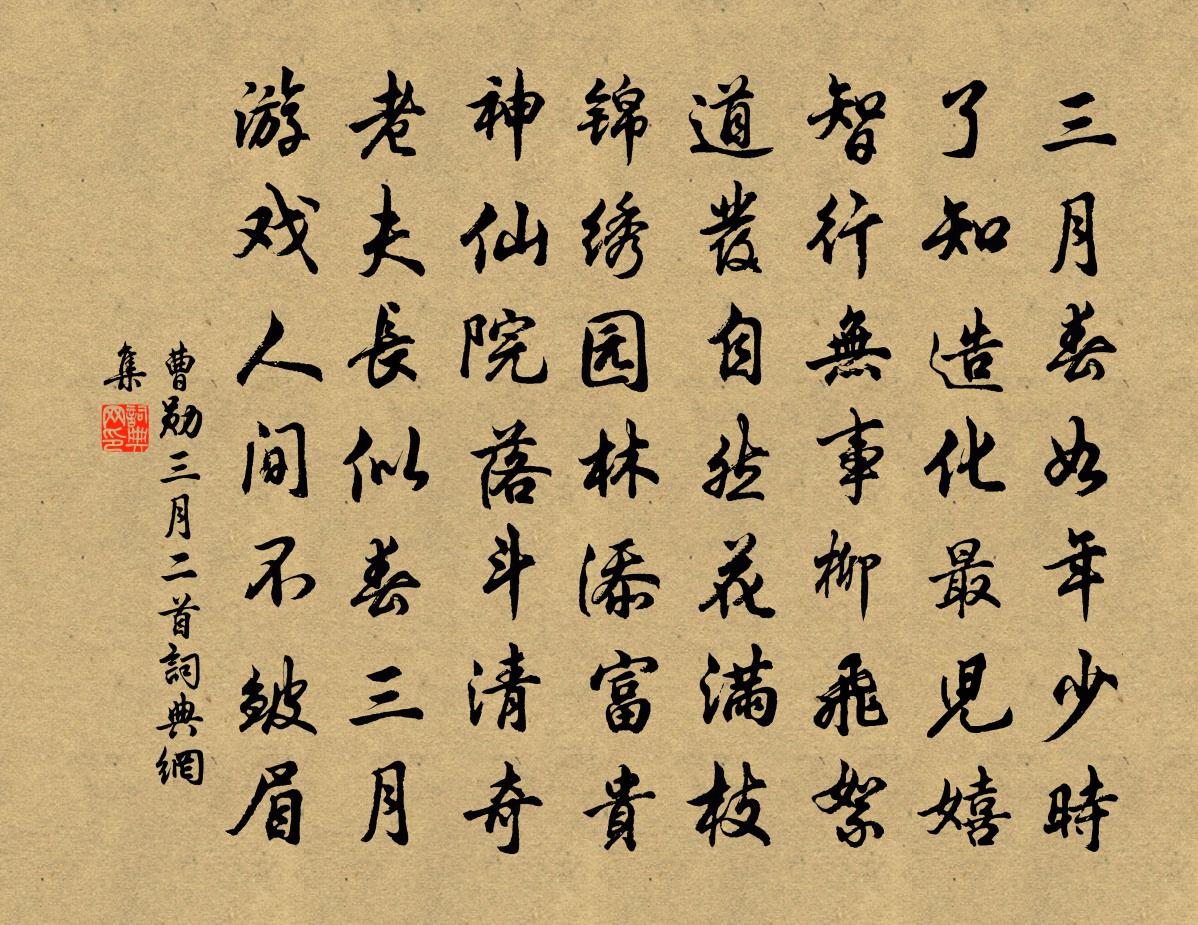 三月春如年少時
了知造化最児嬉
智行無事柳飛絮
道發自然花满枝
锦绣园林添富貴
神仙院落斗清奇
老夫長似春三月
游戏人间不皱眉
曹勋三月二首詞典網
集
詞典网印